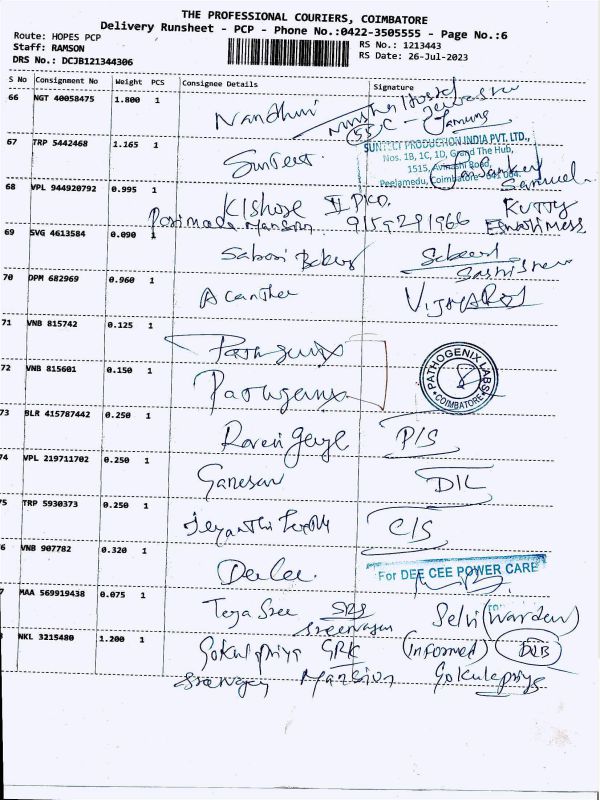 THE PROFESSIONAL COURIERS, COIMBATORE
Delivery Runsheet - PCP - Phone No.:0422-3505555 - Page No.:6
Route: HOPES PCP
Staff: RAMSON
DRS No.: DCJB121344306
RS No.: 1213443
RS Date: 26-Jul-2023
S No Consignment No Weight PCS Consignee Details Signature
66 NGT 40058475 1.800 1 Nandhini
67 TRP 5442468 1.165 1 Suntect
SUNTECT PRODUCTION INDIA PVT. LTD.,
Nos. 1B, 1C, 1D, Grand The Hub,
1515, Avinashi Road,
Peelamedu, Coimbatore - 641 004.
68 VPL 944920792 0.995 1 Kishore
Mansion 9159291966
69 SVG 4613584 0.090 1
70 DPM 682969 0.960 1 Acanthee VIJAYARAJ
71 VNB 815742 0.125 1 Pathogenix
72 VNB 815601 0.150 1 Pathogenix
PATHOGENIX LABS
COIMBATORE
73 BLR 415787442 0.250 1 P/S
74 VPL 219711702 0.250 1 Ganesan DIL
75 TRP 5930373 0.250 1 C/S
6 VNB 907782 0.320 1 Dee Cee
For DEE CEE POWER CARE
7 MAA 569919438 0.075 1 Teja Sree SRS Selvi (Warden)
NKL 3215480 1.200 1 Gokulpriya GRK (Informed)
Mansion Gokulapriya